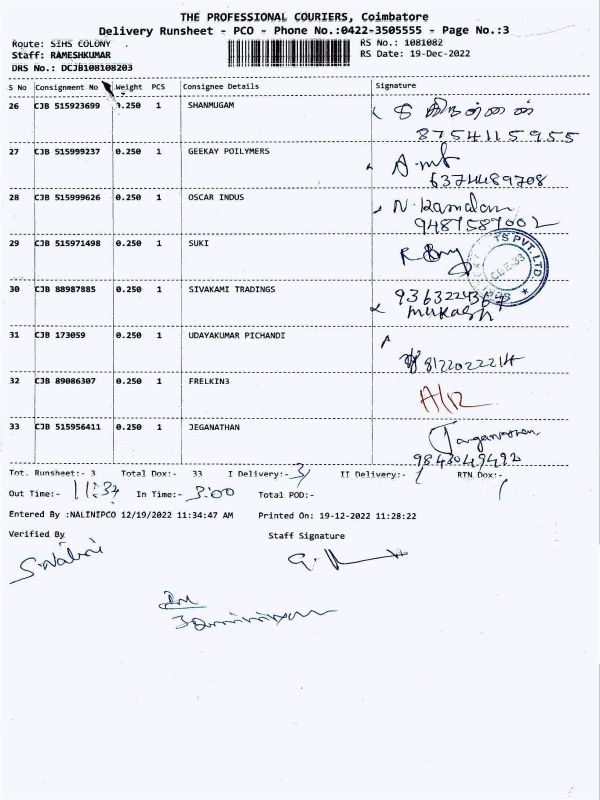 THE PROFESSIONAL COURIERS, Coimbatore
Delivery Runsheet - PCO - Phone No.:0422-3505555 - Page No.:3
Route: SIHS COLONY RS No.: 1081082
Staff: RAMESHKUMAR RS Date: 19-Dec-2022
DRS No.: DCJB108108203
S No Consignment No Weight PCS Consignee Details Signature
26 CJB 515923699 3.250 1 SHANMUGAM
8754115955
27 CJB 515999237 0.250 1 GEEKAY POILYMERS
6374489708
28 CJB 515999626 0.250 1 OSCAR INDUS N. Kamalam
9487587002
29 CJB 515971498 0.250 1 SUKI
TS PVT. LTD.
CBE-33
30 CJB 88987885 0.250 1 SIVAKAMI TRADINGS
mukash
31 CJB 173059 0.250 1 UDAYAKUMAR PICHANDI
8122022214
32 CJB 89086307 0.250 1 FRELKIN3 A/12
33 CJB 515956411 0.250 1 JEGANATHAN
9843049492
Tot. Runsheet:- 3 Total Dox:- 33 I Delivery:- 3 II Delivery:- RTN Dox:-
Out Time:- 11:37 In Time:- 3:00 Total POD:-
Entered By :NALINIPCO 12/19/2022 11:34:47 AM Printed On: 19-12-2022 11:28:22
Verified By Staff Signature
S.Nalini